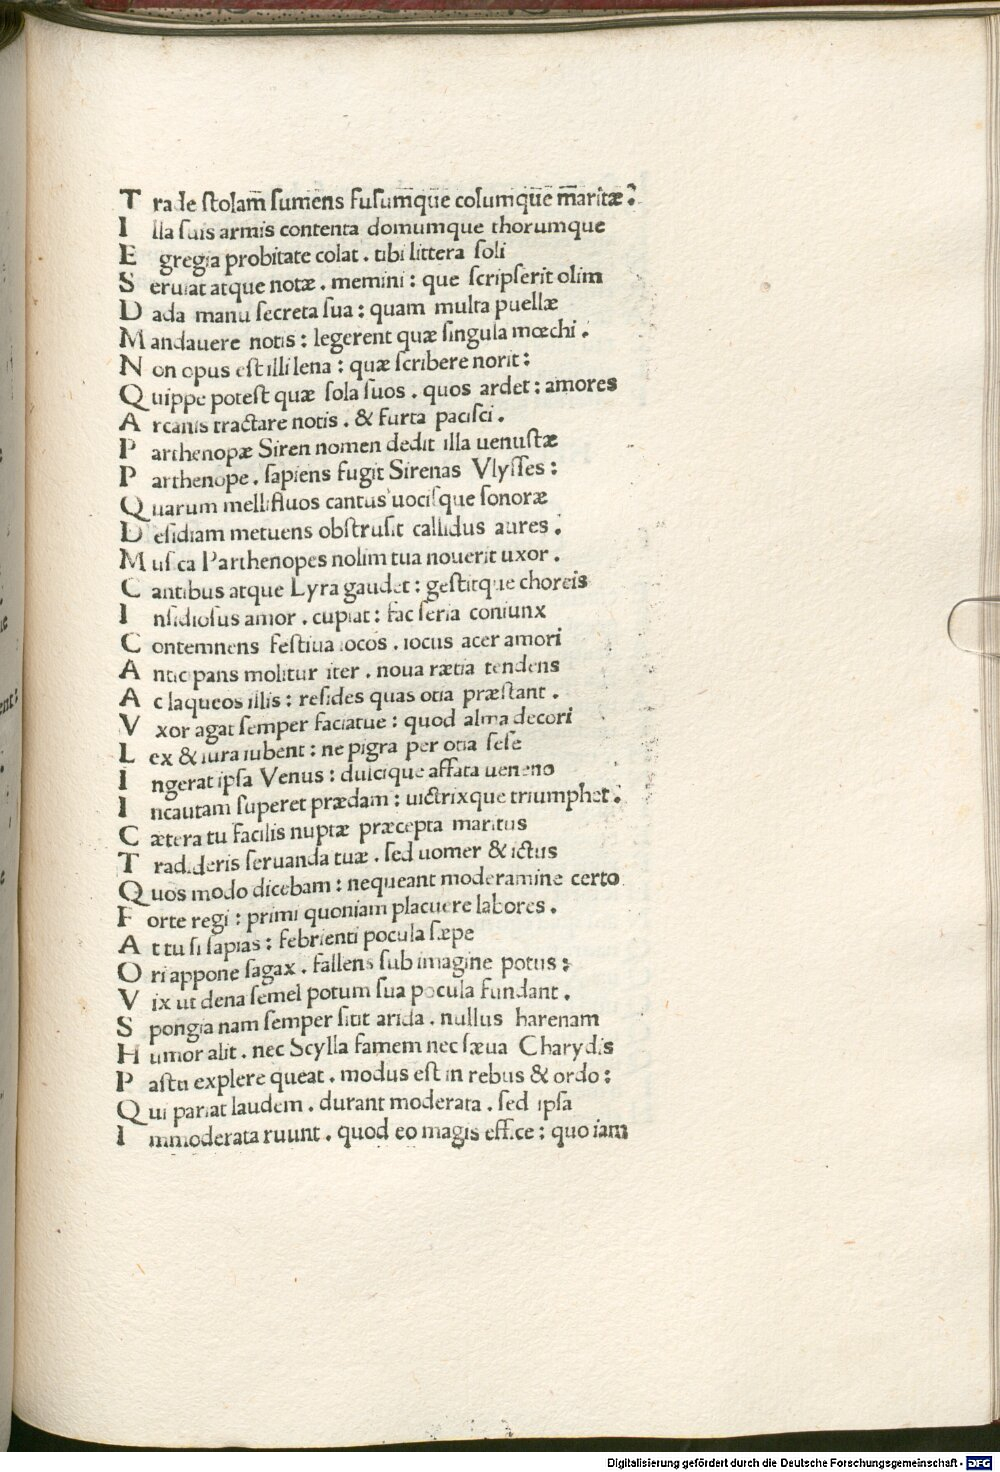 Trade stolam̅ sumens fusumq̅ue colum que̅ maritæ?
Illa suis armis contenta domumque thorumque
Egregia probitate colat. tibi littera soli
Seruiat atque notæ. memini: que scripserit olim
Dada manu secreta sua: quam multa puellæ
Mandauere notis: legerent quæ singula mœchi.
Non opus est illi lena: quæ scribere norit:
Quippe potest quæ sola suos. quos ardet: amores
Arcanis tractare notis. & furta pacisci.
Parthenopæ Siren nomen dedit illa uenustæ
Parthenope. sapiens fugit Sirenas Vlysses:
Quarum mellifluos cantus uocisque sonoræ
Desidiam metuens obstrusit callidus aures.
Musca Parthenopes nolim tua nouerit uxor.
Cantibus atque Lyra gaudet: gestitque choreis
Insidiosus amor. cupiat: fac seria coniunx
Contemnens festiua iocos. iocus acer amori
Antic pans molitur iter. noua rætia tendens
Ac laqueos illis: resides quas otia præstant.
Vxor agat semper faciatue: quod alma decori
Lex & iura iubent: ne pigra per otia sese
Ingerat ipsa Venus: dulcique affata ueneno
Incautam superet prædam: uictrixque triumphet.
Cætera tu facilis nuptæ præcepta maritus
Tradideris seruanda tuæ. sed uomer & ictus
Quos modo dicebam: nequeant moderamine certo
Forte regi: primi quoniam placuere labores.
At tu si sapias: febrienti pocula sæpe
Ori appone sagax. fallens sub imagine potus:
Vix ut dena semel potum sua pocula fundant.
Spongia nam semper sitit arida. nullus harenam
Humor alit. nec Scylla famem nec sæua Charydis
Pastu explere queat. modus est in rebus & ordo:
Qui pariat laudem. durant moderata. sed ipsa
Immoderata ruunt. quod eo magis effice: quo iam
Digitalisierung gefördert durch die Deutsche Forschungsgemeinschaft - DFG